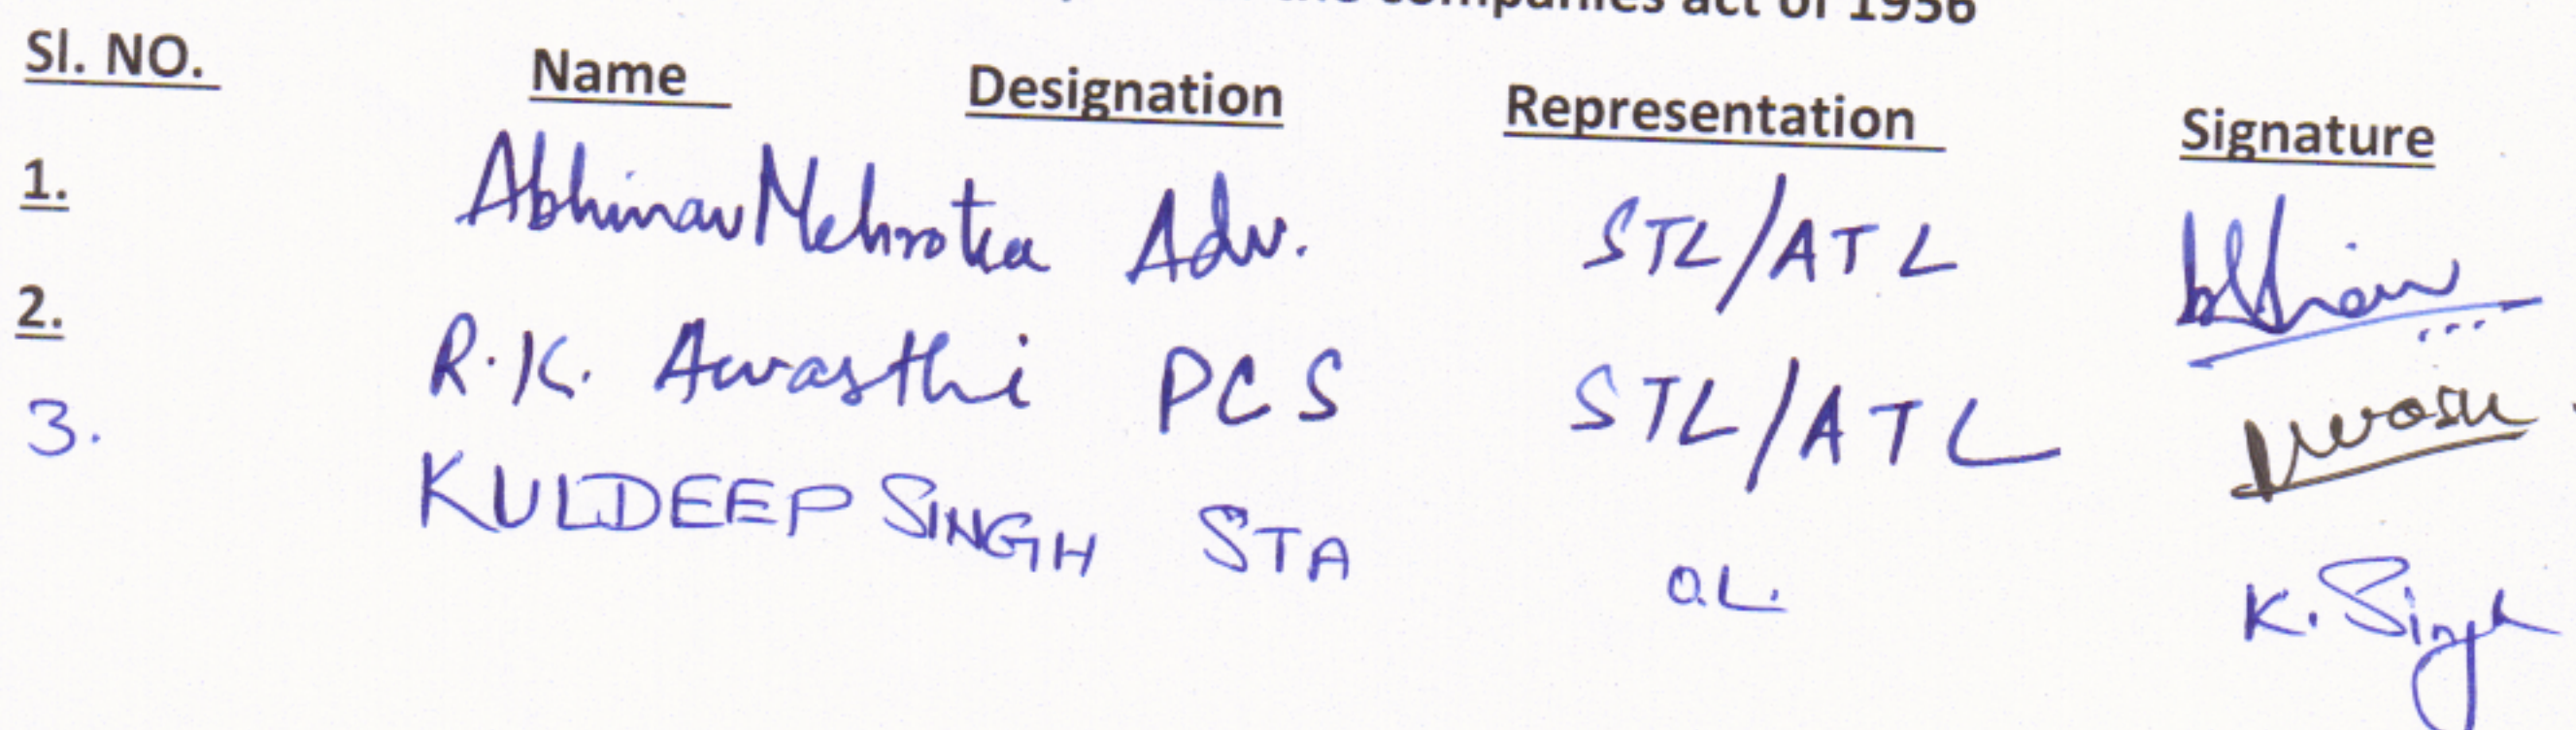 companies act of 1956
Sl. NO. Name Designation Representation Signature
1. Abhinav Mehrotra Adv. STL/ATL
2. R.K. Awasthi PCS STL/ATL
3. KULDEEP SINGH STA O.L. K. Singh